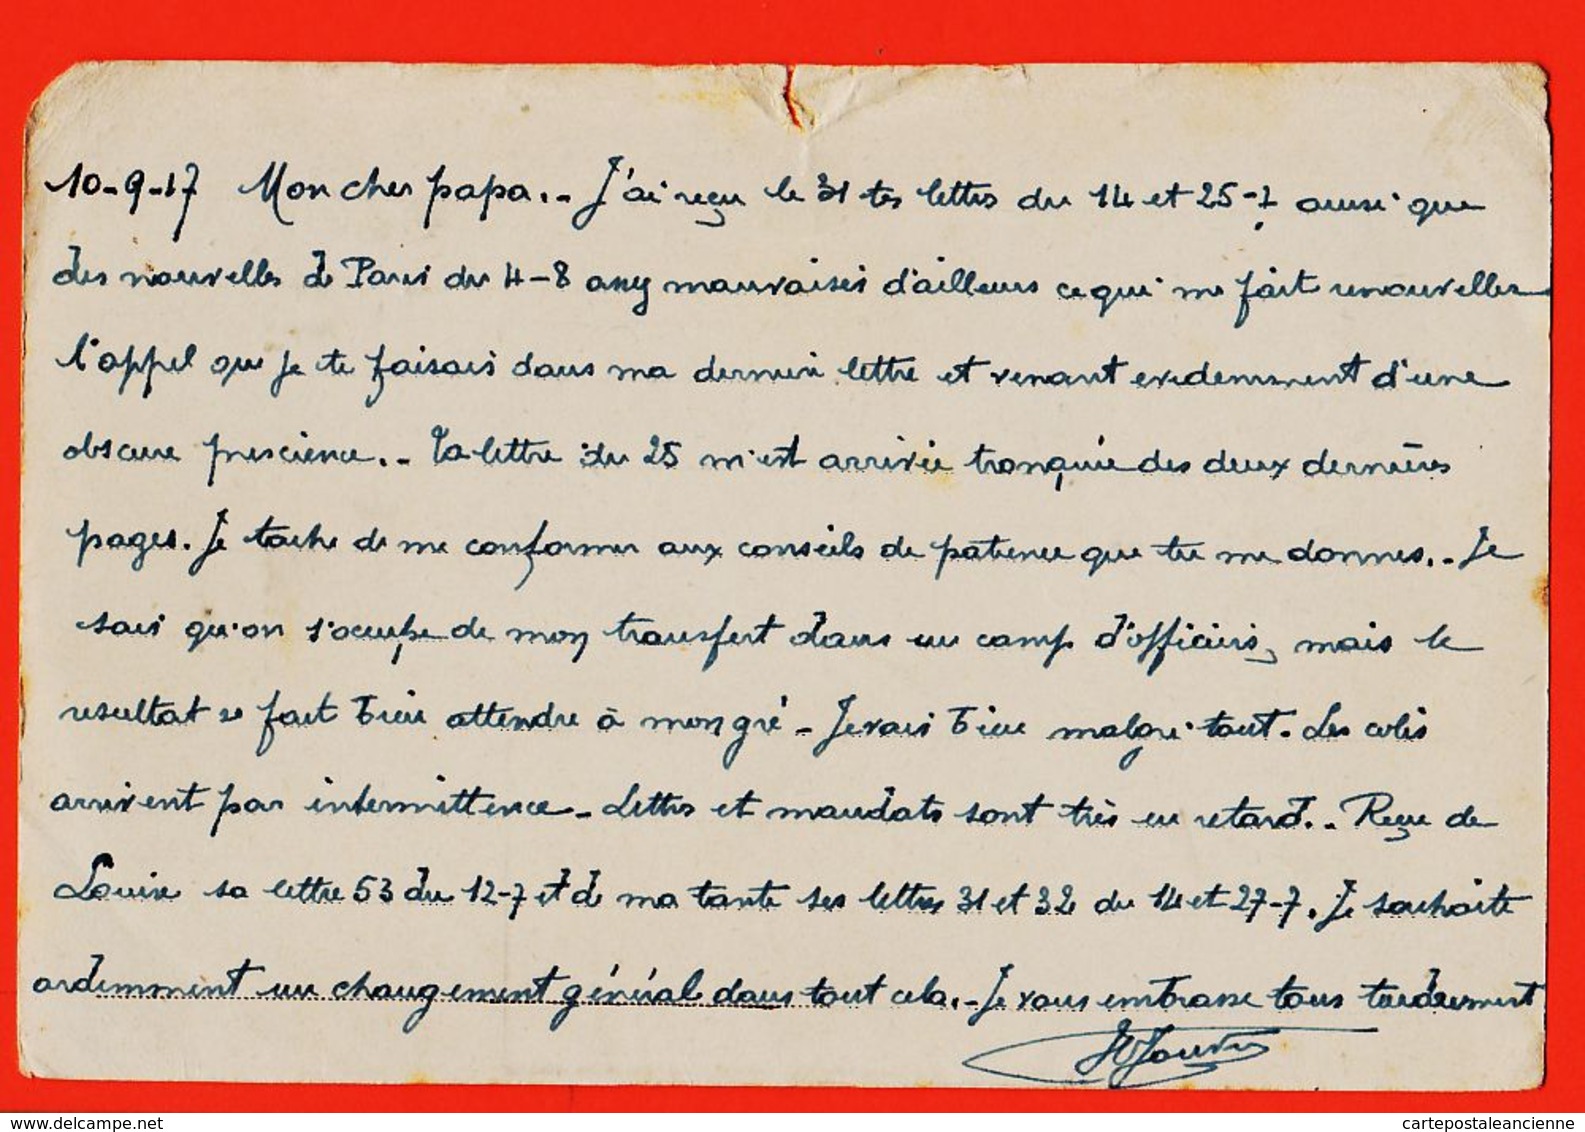 10-9-17 Mon cher papa.- J'ai reçu le 31 tes lettres du 14 et 25-7 ainsi que
des nouvelles de Paris du 4-8 assez mauvaises d'ailleurs ce qui me fait renouveller
l'appel que je te faisais dans ma derniere lettre et venant evidemment d'une
obscure prescience.- Ta lettre du 25 m'est arrivée tronquée des deux dernières
pages. Je tache de me conformer aux conseils de patience que tu me donnes.- Je
sais qu'on s'occupe de mon transfert dans un camp d'officiers, mais le
resultat se fait bien attendre à mon gré - Je vais bien malgré tout. Les colis
arrivent par intermittence - Lettres et mandats sont très en retard.- Reçu de
Louise sa lettre 53 du 12-7 et de ma tante ses lettres 31 et 32 du 14 et 27-7. Je souhaite
ardemment un changement général dans tout cela.- Je vous embrasse tous tendrement
www.delcampe.net
cartepostaleancienne